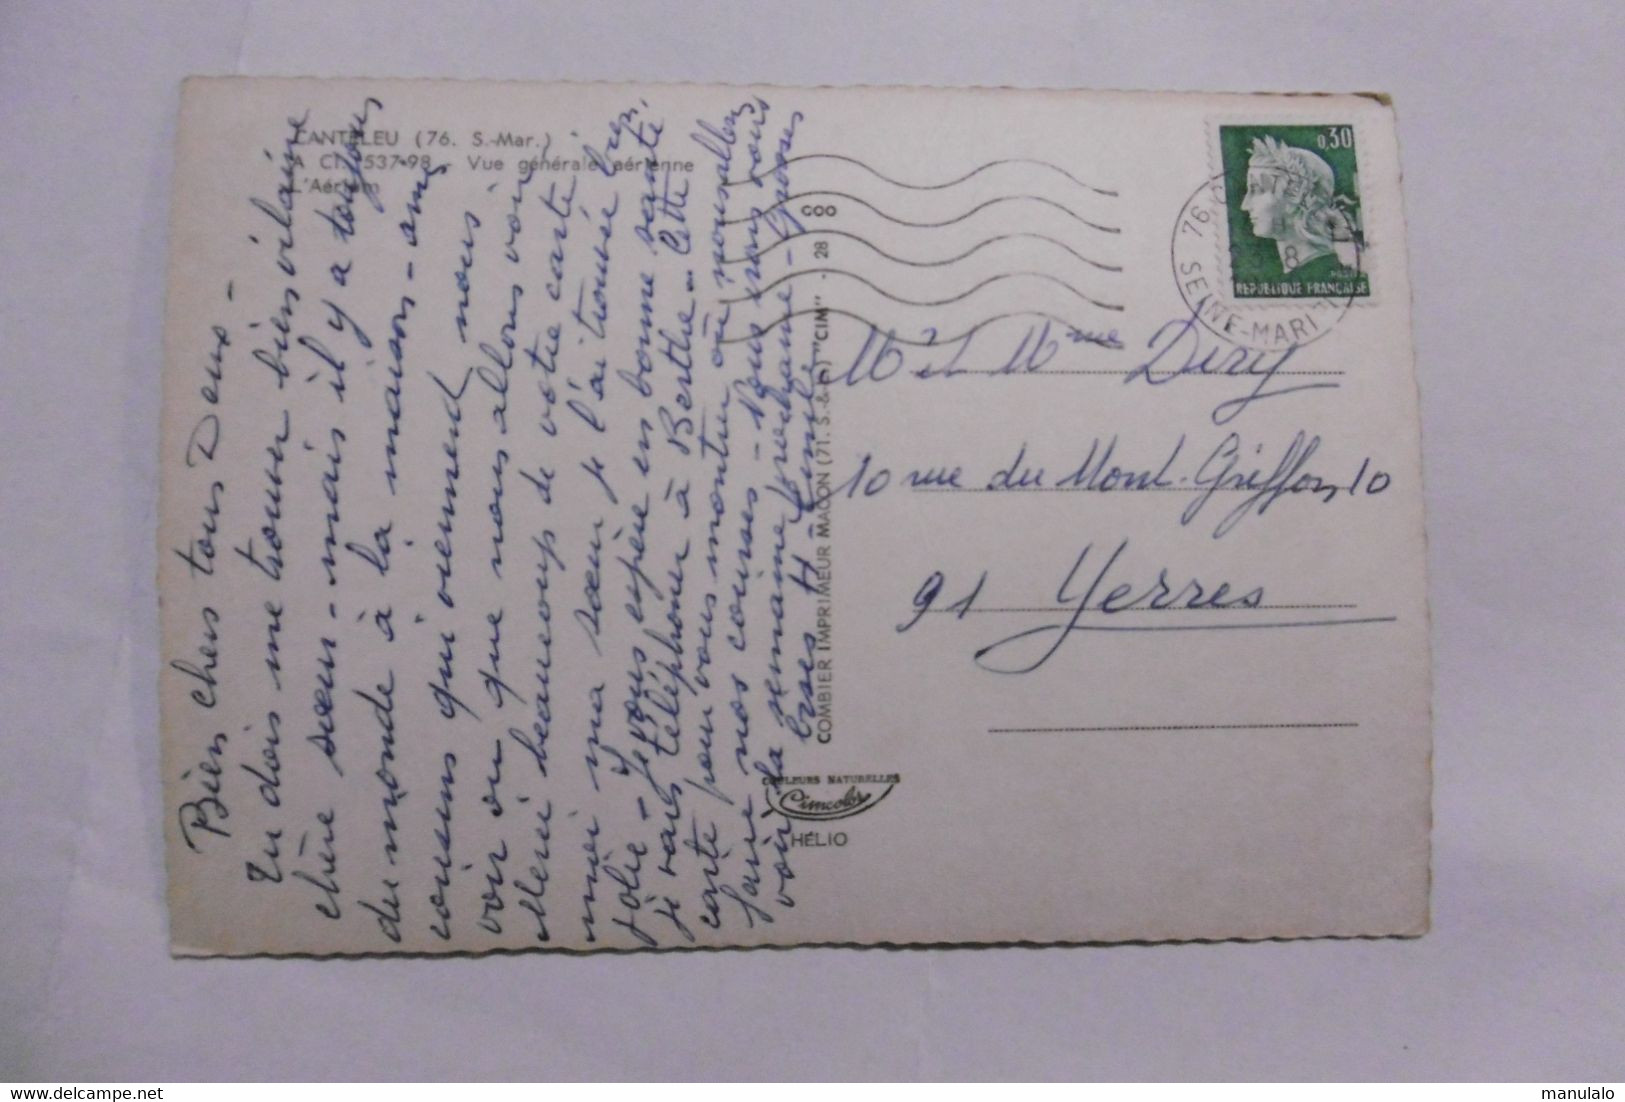 CANTELEU (76. S.-Mar.)
A CI. 537-98 - Vue générale aérienne
L'Aérium
Bien chers tous Deux -
Tu dois me trouver bien vilaine
chère sœur - mais il y a toujours
du monde à la maison - amis
cousins qui viennent nous
voir ou que nous allons voir
Merci beaucoup de votre carte
mimi ma sœur je l'ai trouvée bien
jolie - Je vous espère en bonne santé
je vais téléphoner à Berthe - Cette
carte pour vous montrer où nous allons
faire nos courses - Nous irons vous
voir la semaine prochaine - Grosses
bises
COMBIER IMPRIMEUR MACON (71. S.-&-L.) "CIM" - 28
COULEURS NATURELLES
Cimcolor
HÉLIO
0,30
POSTES
REPUBLIQUE FRANÇAISE
76
SEINE-MARITIME
M et Mme Dery
10 rue du Mont-Griffon, 10
91 Yerres
manulalo